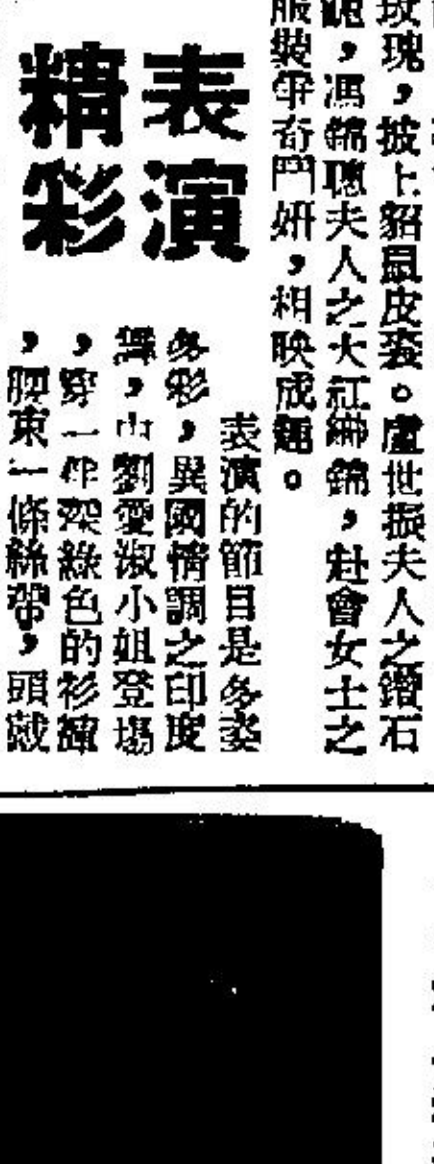 玫瑰，披上貂鼠皮裘。盧世振夫人之鑽石
，馮錦聰夫人之大紅織錦，赴會女士之
服裝爭奇鬥妍，相映成趣。
表演
精彩
表演的節目是多姿
多彩，異國情調之印度
舞，由劉愛淑小姐登場
，穿一件深綠色的衫褲
，腰束一條絲帶，頭戴